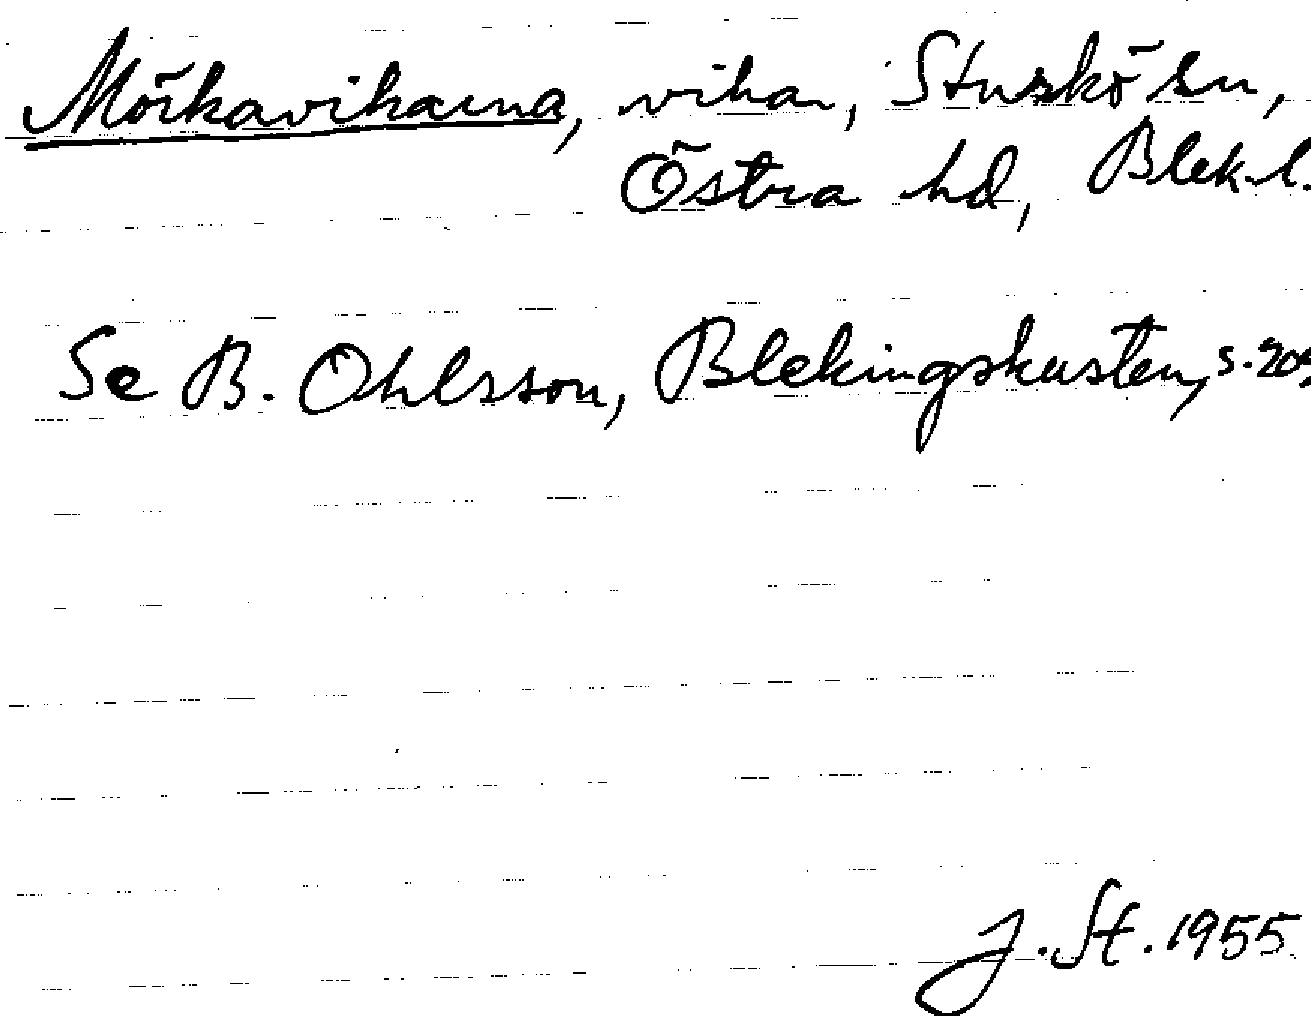 Mörkavikarna, vikar, Sturkö sn,
Östra hd, Blek. l.
Se B. Ohlsson, Blekingskusten, s. 205
J. St. 1955